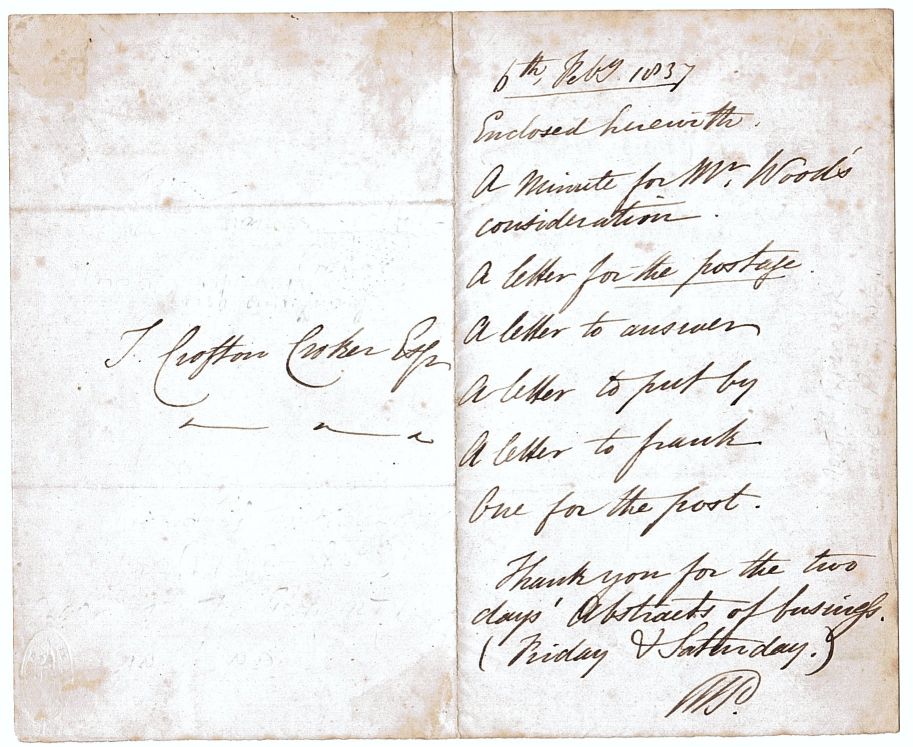 T. Crofton Croker Esqr
6th, Feby. 1837
Enclosed herewith.
A Minute for Mr. Wood's
consideration.
A letter for the postage.
A letter to answer
A letter to put by
A letter to frank
One for the post.
Thank you for the two
days' Abstracts of business.
(Friday & Saturday.)